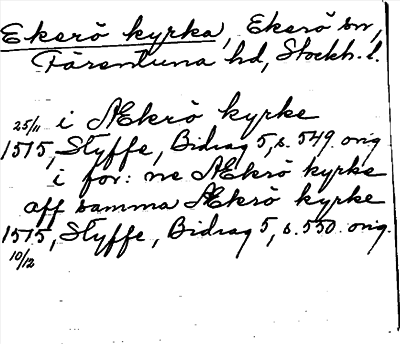 Ekerö kyrka, Ekerö sn,
Färentuna hd, Stockh. l.
25/11 i Ækrö kyrke
1515, Styffe, Bidrag 5, s. 549. orig.
i for: ne Ækrö kyrke
aff samma Ækrö kyrke
1515, Styffe, Bidrag 5, s. 550. orig.
10/12